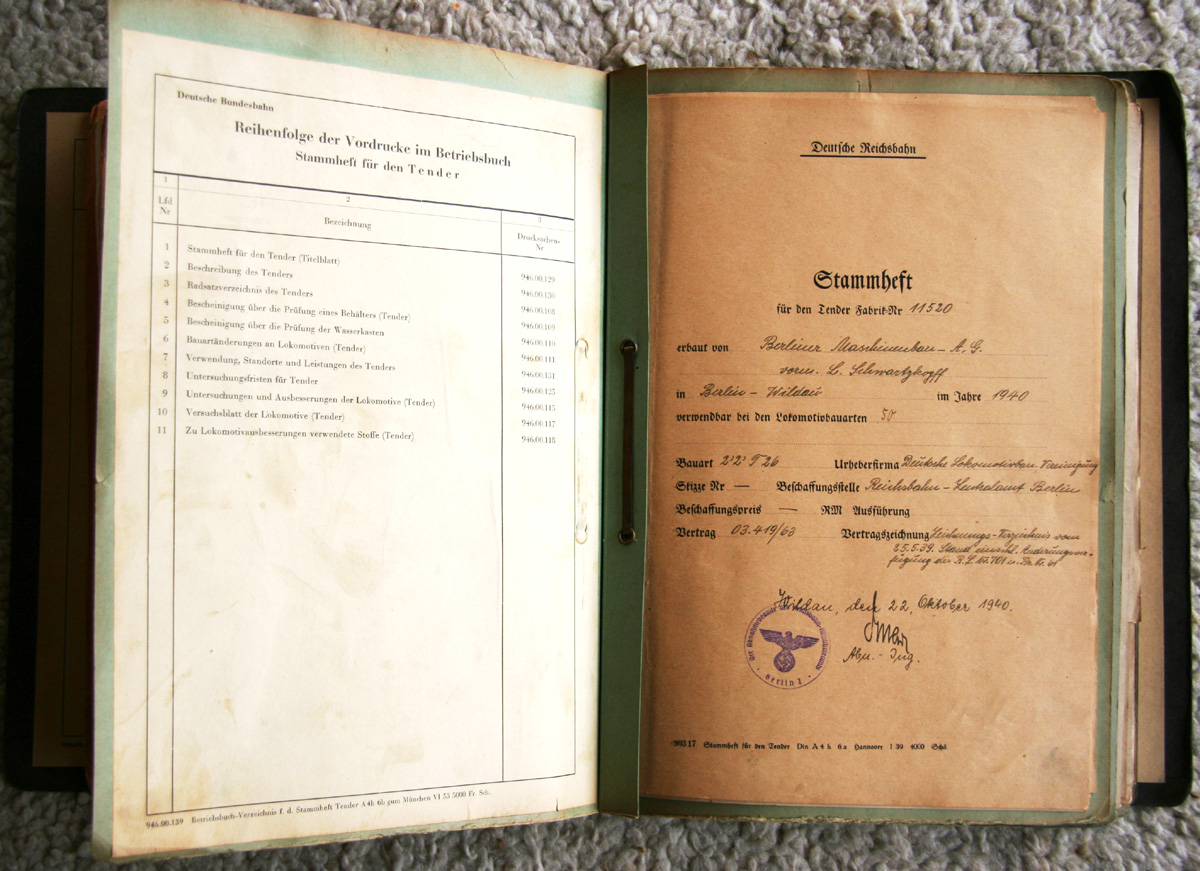 Deutsche Bundesbahn
Reihenfolge der Vordrucke im Betriebsbuch
Stammheft für den Tender
1 2 3
Lfd Nr Bezeichnung Drucksachen-Nr
1 Stammheft für den Tender (Titelblatt) 946.00.129
2 Beschreibung des Tenders 946.00.136
3 Radsatzverzeichnis des Tenders 946.00.108
4 Bescheinigung über die Prüfung eines Behälters (Tender) 946.00.109
5 Bescheinigung über die Prüfung der Wasserkasten 946.00.110
6 Bauartänderungen an Lokomotiven (Tender) 946.00.111
7 Verwendung, Standorte und Leistungen des Tenders 946.00.131
8 Untersuchungsfristen für Tender 946.00.125
9 Untersuchungen und Ausbesserungen der Lokomotive (Tender) 946.00.115
10 Versuchsblatt der Lokomotive (Tender) 946.00.117
11 Zu Lokomotivausbesserungen verwendete Stoffe (Tender) 946.00.118
946.00.139 Betriebsbuch-Verzeichnis f. d. Stammheft Tender A4h 6b gum München VI 53 5000 Fr. Sch.
Deutsche Reichsbahn
Stammheft
für den Tender Fabrik-Nr 11520
erbaut von Berliner Maschinenbau-A.G.
vorm. L. Schwartzkopff
in Berlin-Wildau im Jahre 1940
verwendbar bei den Lokomotivbauarten 50
Bauart 2'2' T 26 Urheberfirma Deutsche Lokomotivbau-Vereinigung
Skizze Nr — Beschaffungsstelle Reichsbahn-Zentralamt Berlin
Beschaffungspreis — RM Ausführung
Vertrag 03.419/63 Vertragszeichnung Zeichnungs-Verzeichnis vom
25.5.39. Stand einschl. Änderungsver-
fügung der
Wildau, den 22. Oktober 1940.
Abn.-Ing.
Berlin 2
Stammheft für den Tender Din A 4 h 6a Hannover 1 39 4000 Schd